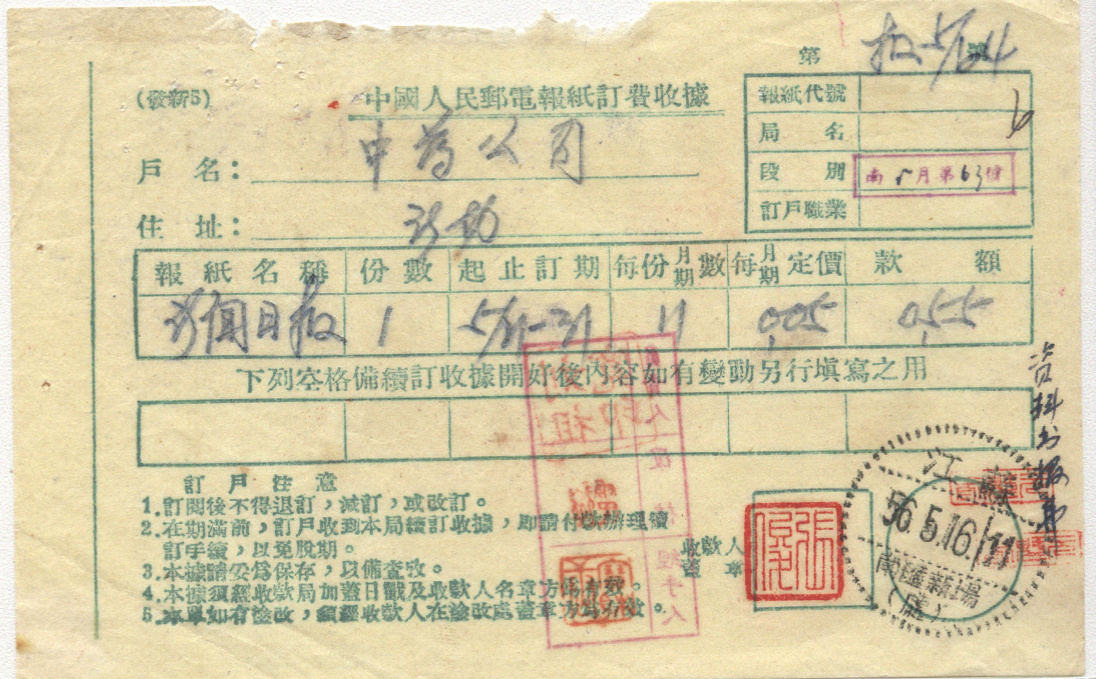 第 號
(發新5)
中國人民郵電報紙訂費收據
報紙代號
局 名
段 別
南 5月第63號
訂戶職業
戶 名：
公司
住 址：
報紙名稱 份數 起止訂期 每份月期數 每月期定價 款 額
新聞日报 1 5/21-31 11 005 055
下列空格備續訂收據開好後內容如有變動另行填寫之用
訂戶注意
1.訂閱後不得退訂，減訂，或改訂。
2.在期滿前，訂戶收到本局續訂收據，即請付款辦理續
訂手續，以免脫期。
3.本據請妥爲保存，以備查攷。
4.本據須經收款局加蓋日戳及收款人名章方爲有效。
5.本單如有塗改，須經收款人在塗改處蓋章方爲有效。
收款人
蓋 章
經手人
江蘇
56.5.16.11
南匯新場
資料书报费